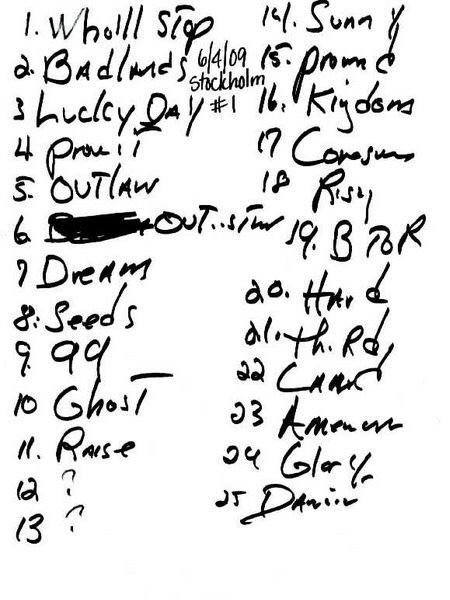 1. Who'll STOP
2. Badlands
6/4/09
Stockholm
#1
3 Lucky Day
4 Prove it
5. OUTLAW
6. OUT..
7 Dream
8. Seeds
9. 99
10 Ghost
11. Raise
12 ?
13 ?
14. Sunny
15. Prom d
16. Kingdom
17
18 Risin
19. B TO R
20. Hard
21. Th. Rd,
22 Land
23 American
24 Glory
25 Dancin